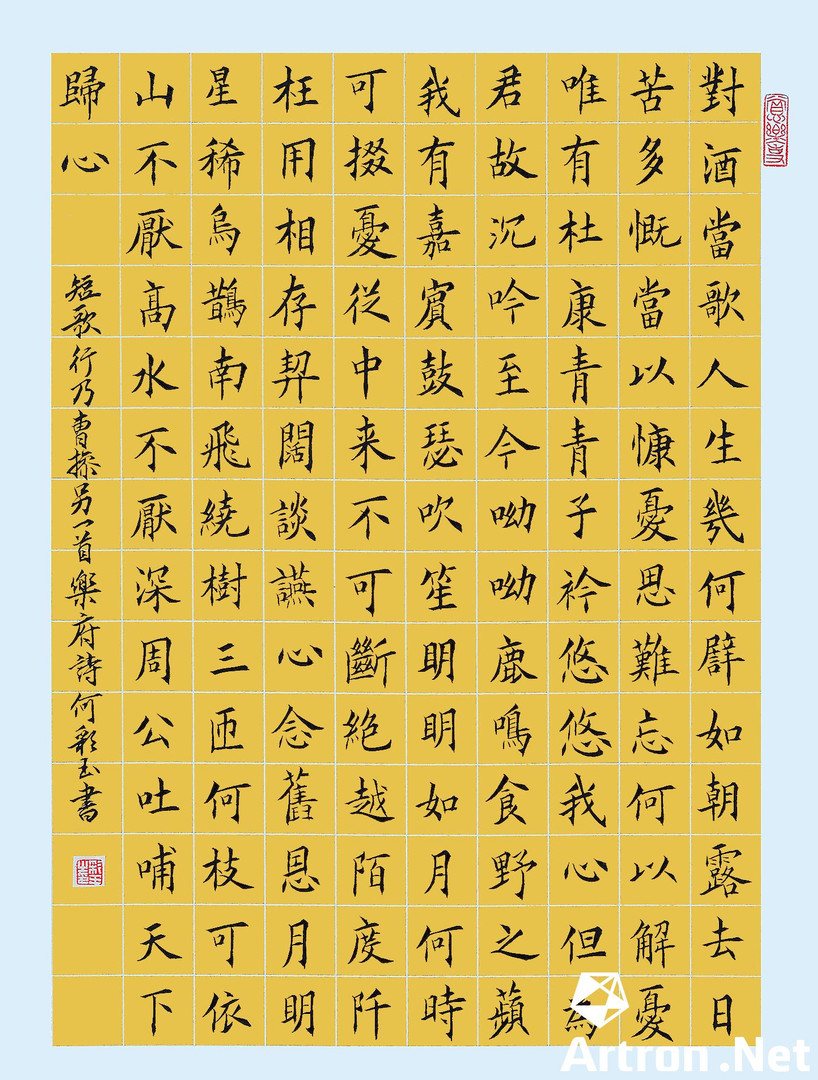 對酒當歌人生幾何譬如朝露去日
苦多慨當以慷憂思難忘何以解憂
唯有杜康青青子衿悠悠我心但為
君故沉吟至今呦呦鹿鳴食野之蘋
我有嘉賓鼓瑟吹笙明明如月何時
可掇憂從中来不可斷絕越陌度阡
枉用相存契闊談讌心念舊恩月明
星稀烏鵲南飛繞樹三匝何枝可依
山不厭高水不厭深周公吐哺天下
歸心
短歌行乃曹操另一首樂府詩何彩玉書
Artron.Net